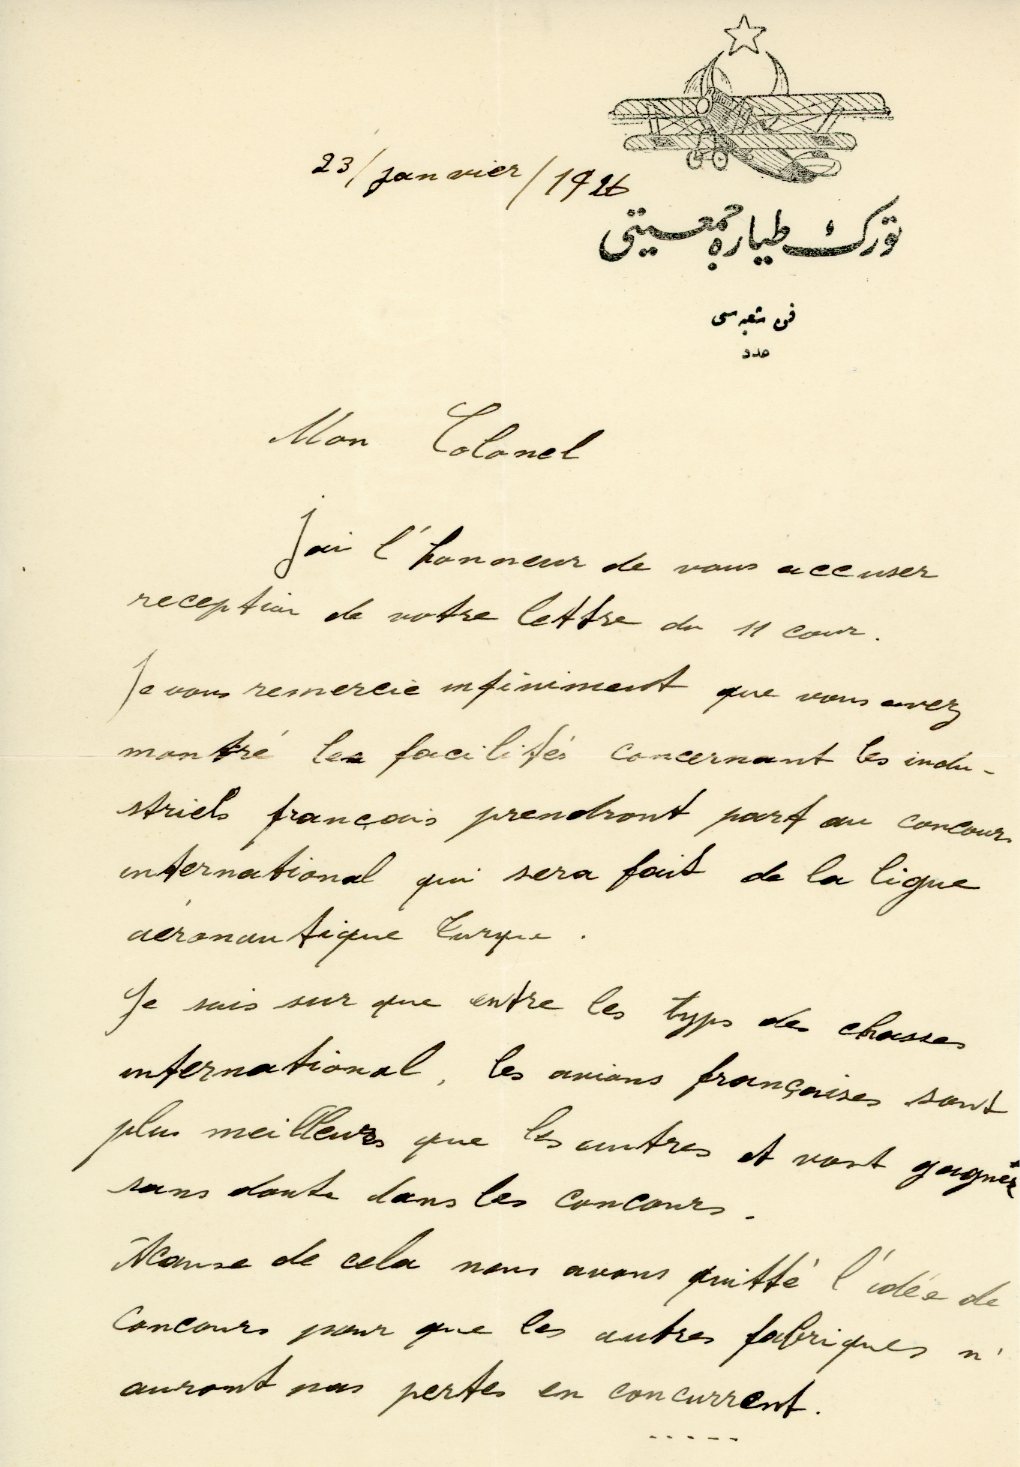 23/janvier/1926
تورك طياره جمعيتى
فن شعبه سى
عدد
Mon Colonel
J'ai l'honneur de vous accuser
reception de votre lettre du 11 cour.
Je vous remercie infiniment que vous avez
montré les facilités concernant les indu-
striels français prendront part au concours
international qui sera fait de la ligue
aéronautique Turque.
Je suis sur que entre les typs des chasses
international, les avions françaises sont
plus meilleurs que les autres et vont gagner
sans doute dans les concours.
Acause de cela nous avons quitté l'idée de
concours pour que les autres fabriques n'
auront pas pertes en concurrent.
-----